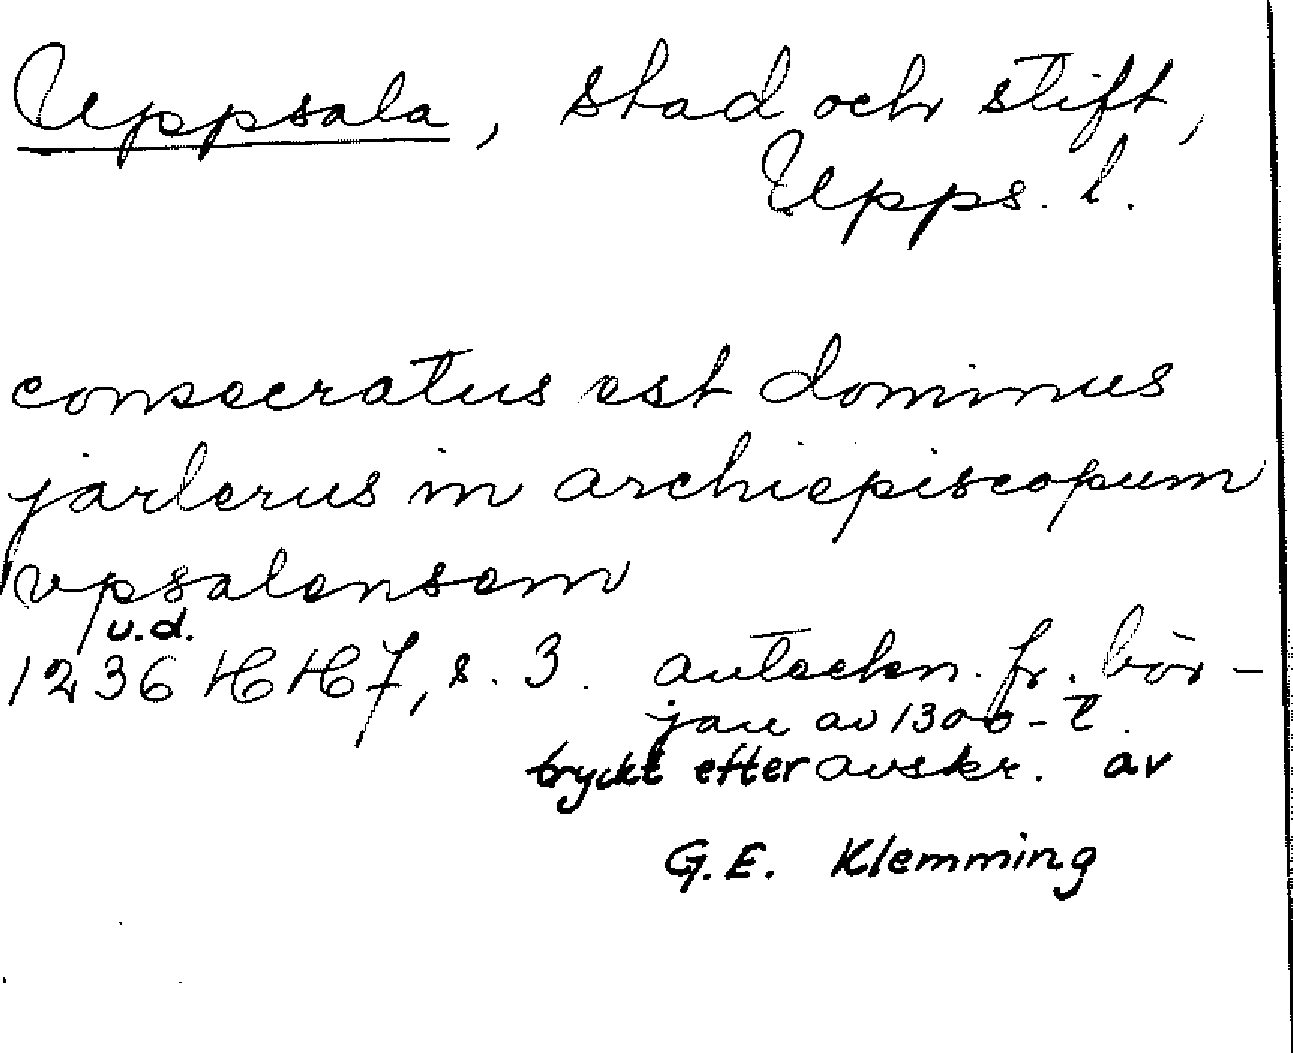 Uppsala, stad och stift,
Upps. l.
consecratus est dominus
jarlerus in archiepiscopum
vpsalensem
u.d.
1236 HH 7, s. 3. anteckn. fr. bör-
jan av 1300-t.
tryckt efter avskr. av
G.E. Klemming